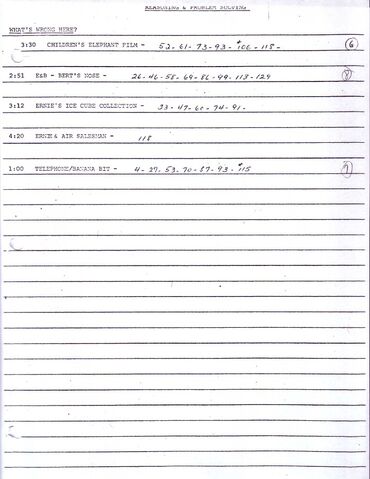 REASONING & PROBLEM SOLVING
WHAT'S WRONG HERE?
3:30 CHILDREN'S ELEPHANT FILM - 52-61-73-93-*106-118- 6
2:51 E&B - BERT'S NOSE - 26-46-58-69-86-99-113-129 8
3:12 ERNIE'S ICE CUBE COLLECTION - 33-47-60-74-91-
4:20 ERNIE & AIR SALESMAN - 118
1:00 TELEPHONE/BANANA BIT - 4-27-53-70-87-93-*115 7